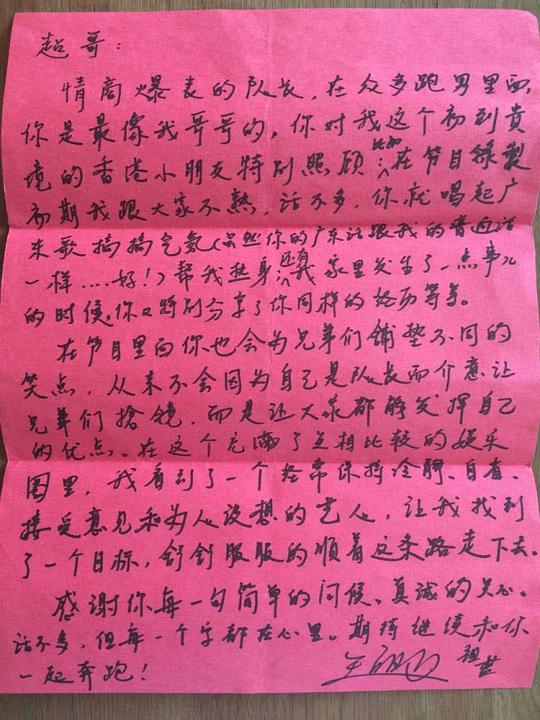 超哥：
情商爆表的队长，在众多跑男里面，
你是最像我哥哥的，你对我这个初到贵
境的香港小朋友特别照顾，比如在节目録製
初期我跟大家不熟，话不多，你就唱起广
东歌搞搞气氛（虽然你的广东话跟我的普通话
一样……好！）帮我热身，还有我家里发生了一点事儿
的时候，你又特别分享了你同样的经历等等。
在节目里面你也会为兄弟们铺垫不同的
笑点，从来不会因为自己是队长而介意让
兄弟们搶镜，而是让大家都能发挥自己
的优点。在这个充满了互相比较的娱乐
圈里，我看到了一个经常保持冷静、自省、
接受意见和为人设想的艺人，让我找到
了一个目标，舒舒服服的顺着这条路走下去。
感谢你每一句简单的问候、真诚的关心。
话不多，但每一个字都在心里。期待继续和你
一起奔跑！ 祖蓝